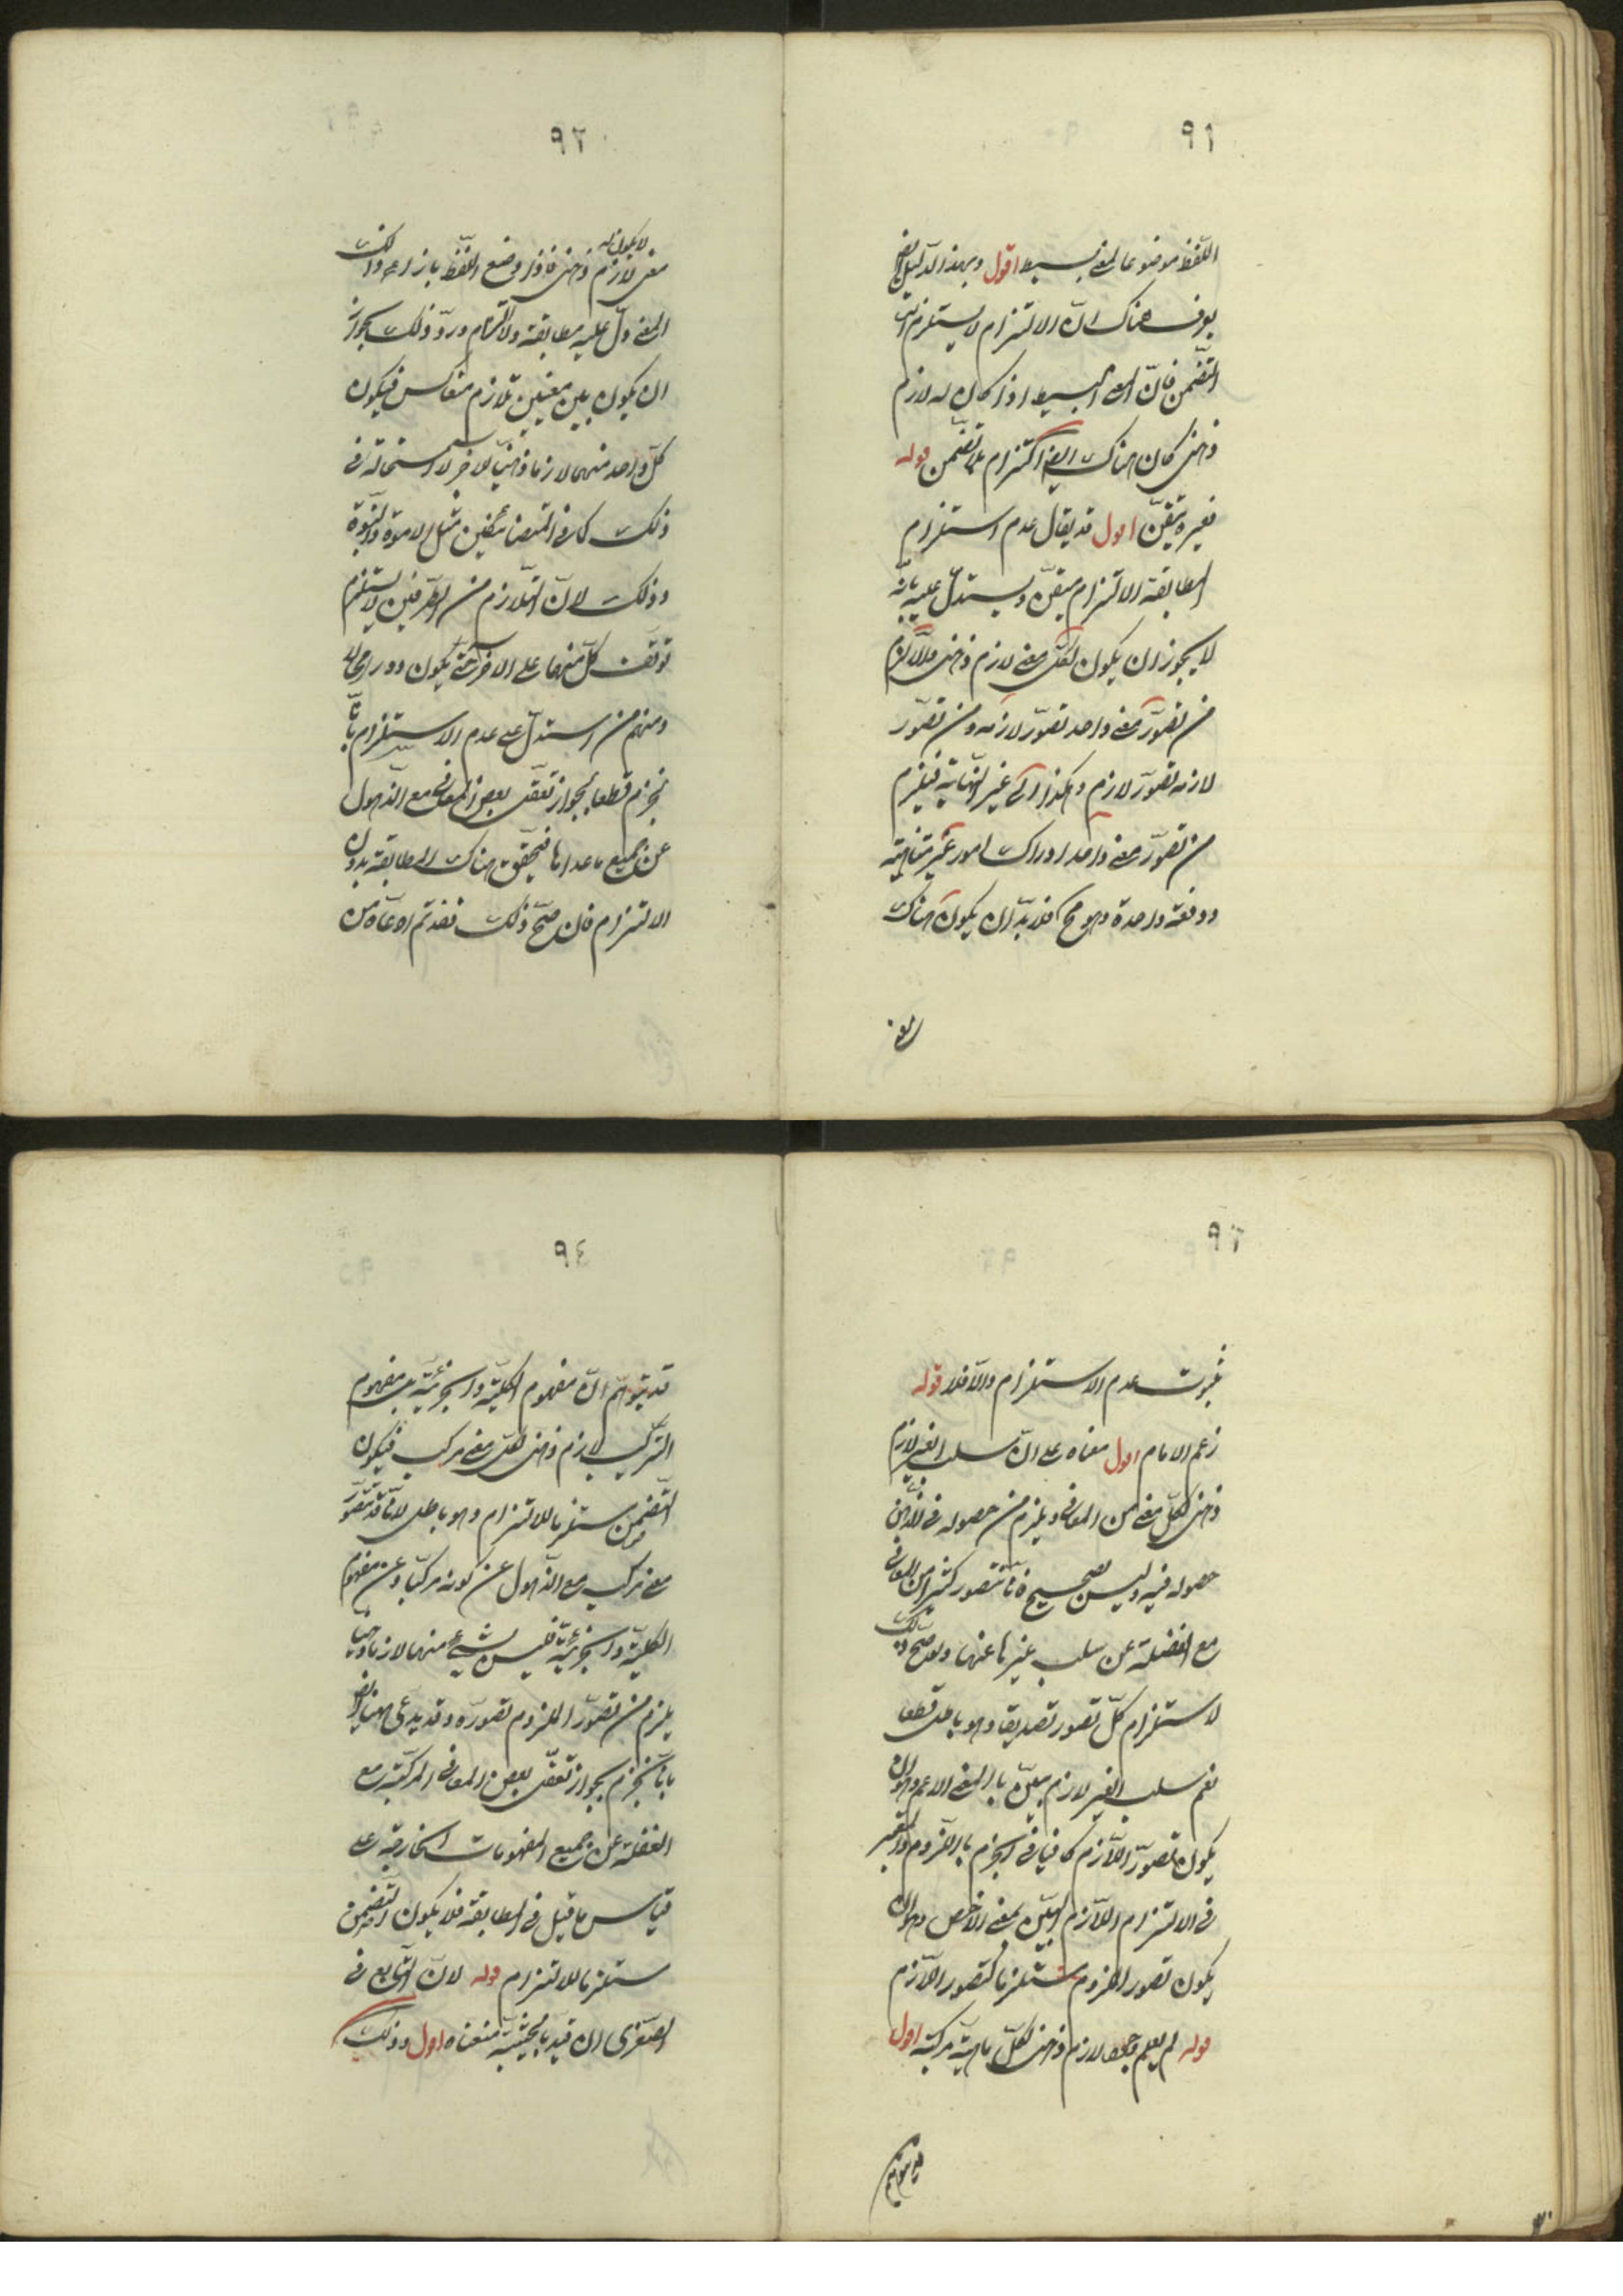 ٩١
اللّفظ موضوعا لمعنى بسيط اقول وبهذا الدّليل ايض
يعرف هناك انّ الالتزام لا يستلزم
التّضمن فانّ المعنى البسيط اذا كان له لازم
ذهنى كان هناك ايض التزام بلا تضمن قوله
فغير متيقّن اقول قد يقال عدم استلزام
المطابقة الالتزام متيقّن ويستدلّ عليه بانّه
لا يجوز ان يكون لكلّ معنى لازم ذهنى والّا لزم
من تصوّر معنى واحد تصوّر لازمه ومن تصوّر
لازمه تصوّر لازم وهكذا الى غير النّهاية فيلزم
من تصوّر معنى واحد ادراك امور غير متناهية
دفعة واحدة وهو مح فلا بدّ ان يكون هناك
معنى
٩٢
معنى لا يكون له لازم ذهنى فاذا وضع اللّفظ بازاء ذلك
المعنى دلّ عليه مطابقة ولا التزام وردّ ذلك بجواز
ان يكون بين معنيين تلازم متعاكس فيكون
كلّ واحد منهما لازما ذهنيّا للاخر لا استحالة فى
ذلك كما فى المتضائفين مثل الابوّة والبنوّة
وذلك لانّ التّلازم من الطّرفين لا يستلزم
توقّف كلّ منهما على الاخر حتّى يكون دورا محالا
ومنهم من استدلّ على عدم الاستلزام بانّا
نجزم قطعا بجواز تعقّل بعض المعانى مع الذّهول
عن جميع ما عداها فيتحقّق هناك المطابقة بدون
الالتزام فان صحّ ذلك فقد تمّ ادّعاه من
٩٣
ثبوت عدم الاستلزام والّا فلا قوله
زعم الامام اقول مبناه على انّ سلب الغير لازم
ذهنى لكلّ معنى من المعانى ويلزم من حصوله فى الذّهن
حصوله فيه وليس بصحيح فانّا نتصور كثيرا من المعانى
مع الغفلة عن سلب غيرها عنها ولو صحّ ذلك
لاستلزام كلّ تصور تصديقا وهو باطل قطعا
نعم سلب الغير لازم بيّن بالمعنى الاعم وهو ان
يكون تصوّر اللّازم كافيا فى الجزم باللّزوم والمعتبر
فى الالتزام اللّازم البيّن بمعنى الاخص وهو ان
يكون تصور الملزوم مستلزما لتصور اللّازم
قوله لم يعلم وجود لازم ذهنى لكلّ ماهيّة مركبّة اقول
قد يتوهّم
٩٤
قد يتوهّم انّ مفهوم الكليّة والجزئيّة بل مفهوم
التّركيب لازم ذهنى لكلّ معنى مركب فيكون
التّضمن مستلزما للالتزام وهو باطل لانّا قد نتصوّر
معنى مركب مع الذّهول عن كونه مركبّا وعن مفهوم
الكليّة والجزئيّة فليس شىء منها لازما ذهنيا
يلزم من تصوّر الملزوم تصوّره وقد يدعى ههنا ايض
بانّا نجزم بجواز تعقّل بعض المعانى المركبّة مع
الغفلة عن جميع المفهومات الخارجة على
قياس ما قيل فى المطابقة فلا يكون التّضمن
مستلزما للالتزام قوله لانّ التّابع فى
الصّغرى ان قيد بالحيثيّة منعناه اقول وذلك